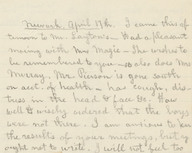 Newark. April 17th. I came this af
ternoon to Mr. Saytons. Had a pleasant
meeting with Mrs. Magie. She wishes to
be remembered to you — so also does Mrs
Murray. Mr. Pierson is gone south
on acct. of health, has cough, dis-
tress in the head & face &c. How
well & wisely ordered that the boys
were not there. I am anxious to know
the results of your meeting, but you
ought not to write. I will not feel too